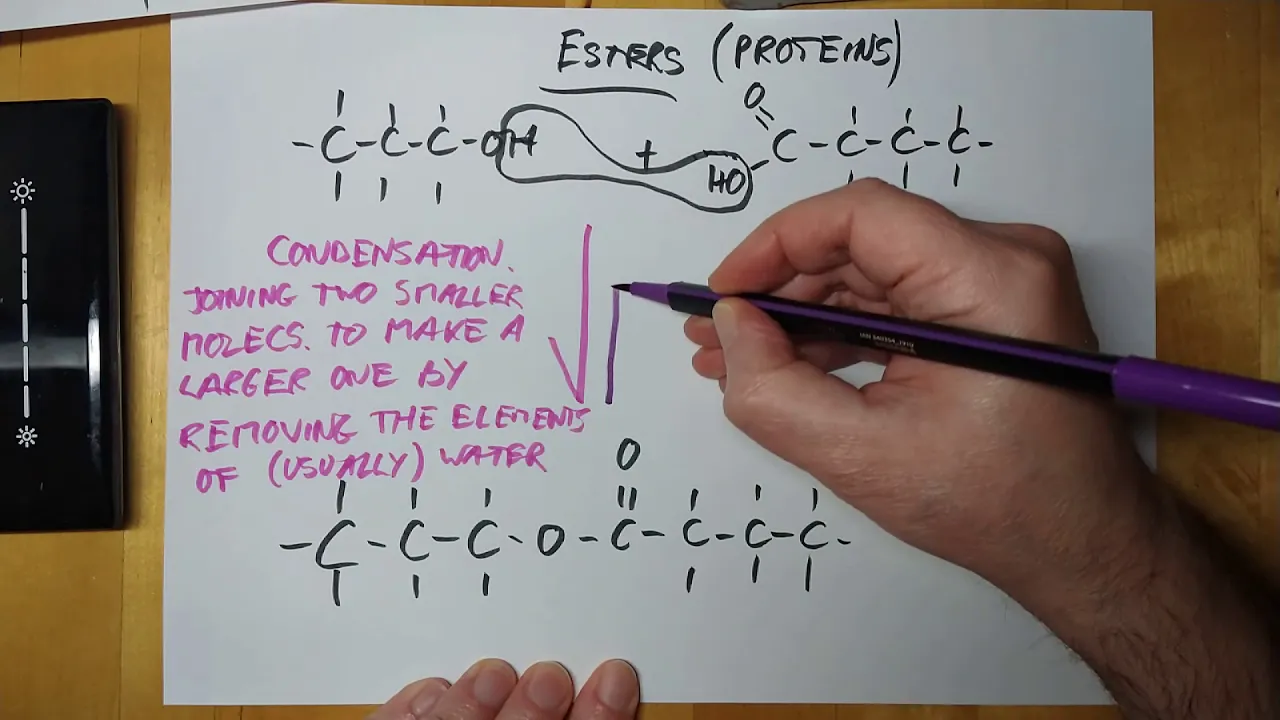 ESTERS (PROTEINS)
O
- C - C - C - OH + HO - C - C - C - C -
CONDENSATION.
JOINING TWO SMALLER
MOLECS. TO MAKE A
LARGER ONE BY
REMOVING THE ELEMENTS
OF (USUALLY) WATER
O
- C - C - C - O - C - C - C - C -